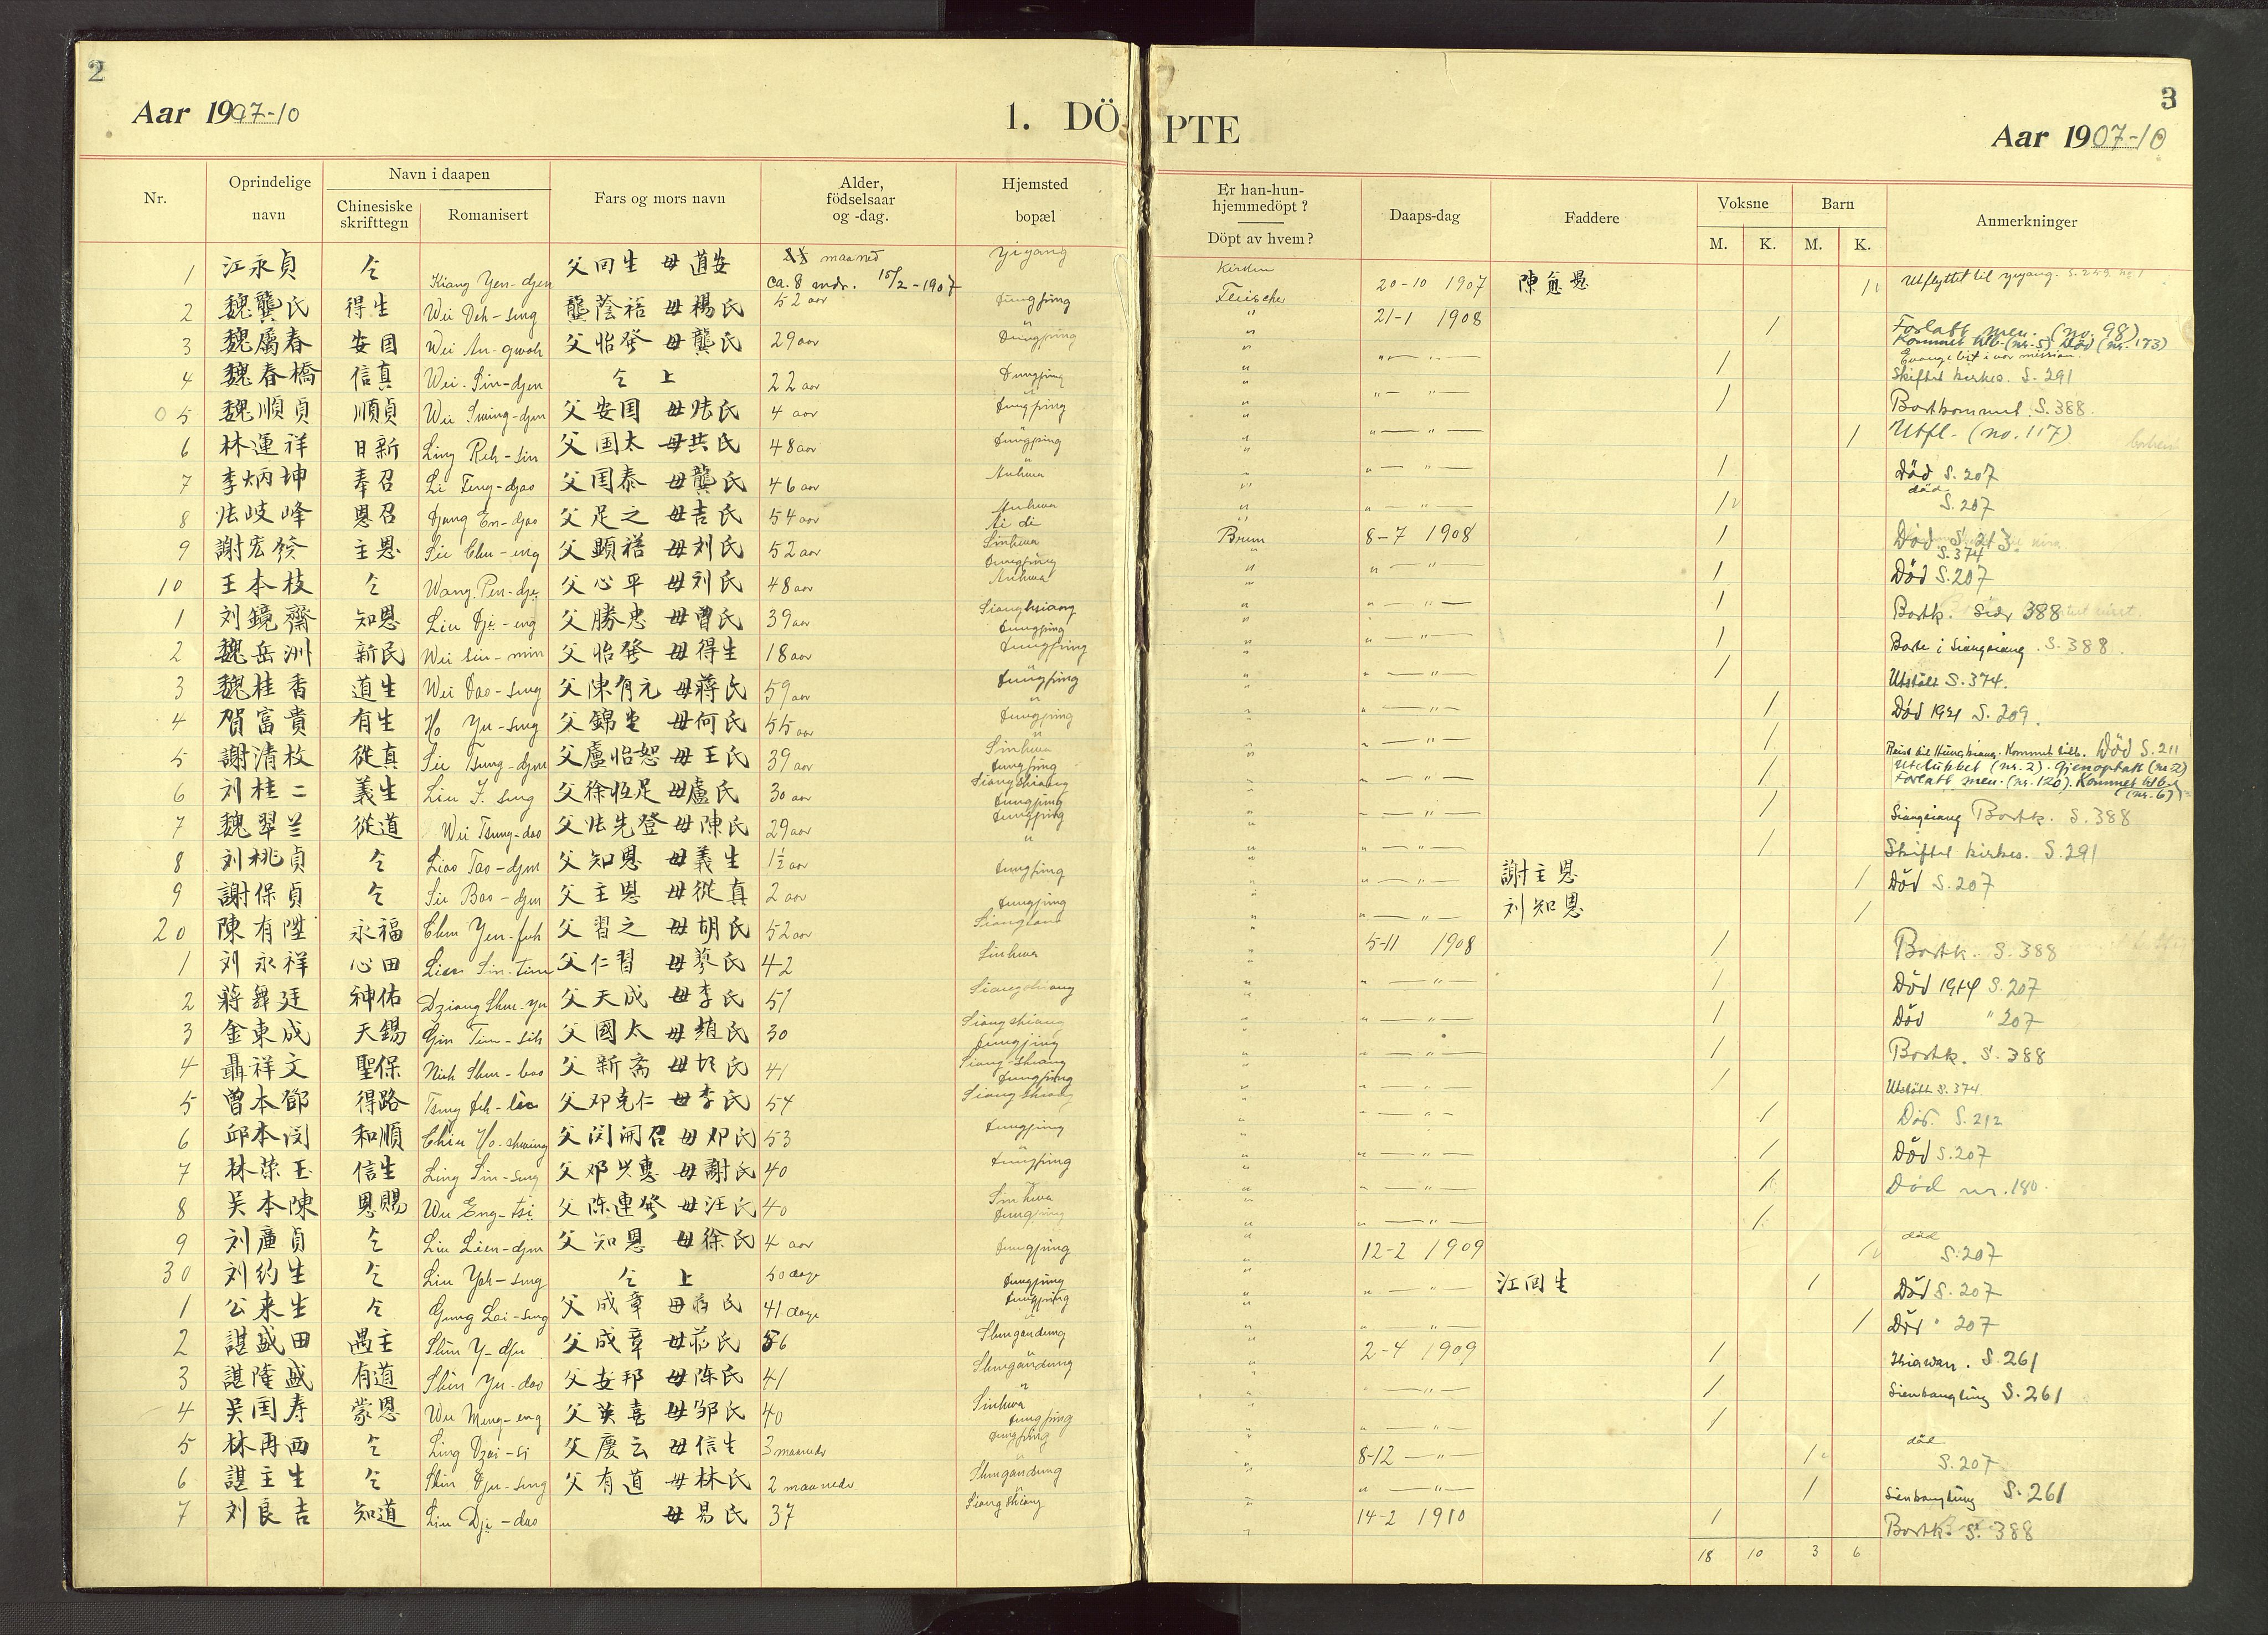 2
Aar 1907-10
1. DÖ
Nr.
Oprindelige navn
Navn i daapen
Chinesiske skrifttegn
Romanisert
Fars og mors navn
Alder, födselsaar og -dag.
Hjemsted bopæl
1 江永貞 仝 Kiang Yen-djen 父回生 母道安 maaned ca. 8 mdr. 15/2-1907 Yiyang
2 魏龔氏 得生 Wei Deh-seng 龔蔭禧 母楊氏 52 aar Dungping
3 魏屬春 安国 Wei An-gwoh 父怡發 母龔氏 29 aar Dungping
4 魏春橋 信真 Wei Sin-djen 仝上 22 aar Dungping
5 魏順貞 順貞 父安国 母張氏 4 aar Dungping
6 林運祥 日新 Ling Reh-sin 父国太 母共氏 48 aar Dungping
7 李炳坤 奉召 Li Feng-djao 父国泰 母龔氏 46 aar Anhwa
8 張岐峰 恩召 Djang En-djao 父足之 母吉氏 54 aar Anhwa
9 謝宏發 主恩 Sie Chu-eng 父顕禧 母刘氏 52 aar Sinhwa Dungping
10 王本枝 仝 Wang Pen-dje 父心平 母刘氏 48 aar Anhwa
1 刘鏡齋 知恩 Liu Dji-eng 父勝忠 母曾氏 39 aar Sianghsiang Dungping
2 魏岳洲 新民 Wei Sin-min 父怡發 母得生 18 aar Dungping
3 魏桂香 道生 Wei Dao-seng 父陳有元 母蔣氏 59 aar Dungping
4 賀富貴 有生 Ho Yu-seng 父錦堂 母何氏 55 aar Dungping
5 謝清枚 従真 Sie Tsung-djen 父盧怡恕 母王氏 39 aar Sinhwa Dungping
6 刘桂二 義生 Liu I-seng 父徐恆足 母盧氏 30 aar Siangshiang Dungping
7 魏翠兰 従道 Wei Tsung-dao 父張先登 母陳氏 29 aar Dungping
8 刘桃貞 仝 Liao Tao-djen 父知恩 母義生 1½ aar Dungping
9 謝保貞 仝 Sie Bao-djen 父主恩 母従真 2 aar Dungping
20 陳有陞 永福 Chen Yen-fuh 父習之 母胡氏 52 aar Siangtan
1 刘永祥 心田 Lieu Sin-tien 父仁習 母蓼氏 42 Sinhwa
2 蔣舞廷 神佑 Dziang Shen-yu 父天成 母李氏 51 Siangshiang
3 金東成 天錫 Gin Tien-sih 父國太 母趙氏 30 Siangshiang Dungping
4 聶祥文 聖保 Nieh Shen-bao 父新斋 41 Siang-shiang Dungping
5 曾本鄧 得路 Tseng Deh-lu 父邓克仁 母李氏 54 Siangshiang
6 邱本闵 和順 Chiu Ho-shuing 父闵開召 母邓氏 53 Dungping
7 林荣玉 信生 Ling Sin-seng 父邓兴惠 母謝氏 40 Dungping
8 吴本陳 恩賜 Wu Eng-tsi 父陈連發 母汪氏 40 Sinhwa Dungping
9 刘廉貞 仝 Liu Lien-djen 父知恩 母徐氏 4 aar Dungping
30 刘約生 仝 Liu Yoh-seng 仝上 50 dage Dungping
1 公来生 仝 Gung Lai-seng 父成章 母蒋氏 41 dage Dungping
2 諶盛田 遇主 Shen Y-dju 父成章 56 Shengandung
3 諶隆盛 有道 Shen Yu-dao 父安邦 母陈氏 41 Shengandung
4 吴国寿 蒙恩 Wu Meng-eng 父英喜 母邹氏 40 Sinhwa Dungping
5 林再西 仝 Ling Dzai-si 父慶云 母信生 3 maaneder Dungping
6 諶主生 仝 Shen Dju-seng 父有道 母林氏 2 maaneder Shengandung
7 刘良吉 知道 Liu Dji-dao 母易氏 37 Siangshiang
3
PTE
Aar 1907-10
Er han-hun-hjemmedöpt?
Döpt av hvem?
Daaps-dag
Faddere
Voksne
M. K.
Barn
M. K.
Anmerkninger
Kirken 20-10 1907 1 Utflyttet til Yiyang. S. 259 nr 1
Teischer 21-1 1908 1 Forlatt men. (no. 98)
Kommet tilb. (nr. 5) Død (nr. 173)
" — " — 1 Evangelist i vor mission.
Skiftet kirkes. S. 291
" — " — 1 Bortkommet. S. 388.
" — " — 1 Utfl. - (no. 117)
" — " — 1 Död S. 207
" — " — 1 död S. 207
Brun 8-7 1908 1 Död S. 213.
S. 374
" — " — 1 Död S. 207
" — " — 1 Bortk. Side 388
" — " — 1 Borte i Siangsiang. S. 388.
" — " — 1 Utstött S. 374.
" — " — 1 Död 1921 S. 209.
" — " — 1 Kommet tilb. Död S. 211
" — " — 1 Utelukket (nr. 2). Gjenoptatt (nr 2)
Forlatt men. (nr. 120). Kommet tilb. (nr. 6)
" — " — 1 Siangsiang Bortk. S. 388
" — " — 1 Skiftet kirkes. S. 291
" — " — 謝主恩 1 Död S. 207
" — " — 刘知恩 1
5-11 1908 1 Bortk. S. 388
" — " — 1 Död 1914 S. 207
" — " — 1 Död " 207
" — " — 1 Bortk. S. 388
" — " — 1 Utstött S. 374
" — " — 1 Död. S. 212
" — " — 1 Död S. 207
" — " — 1 Död nr. 180.
" — " — 1
12-2 1909 1 död S. 207
" — " — 江回生 1 Död S. 207
" — " — 1 Död " 207
2-4 1909 1 S. 261
— " — 1 Sienkangling S. 261
" — " — 1
8-12 — " 1 död S. 207
" — " — 1 Sienkangling S. 261
14-2 1910 1 Bortk. S. 388
18 10 3 6